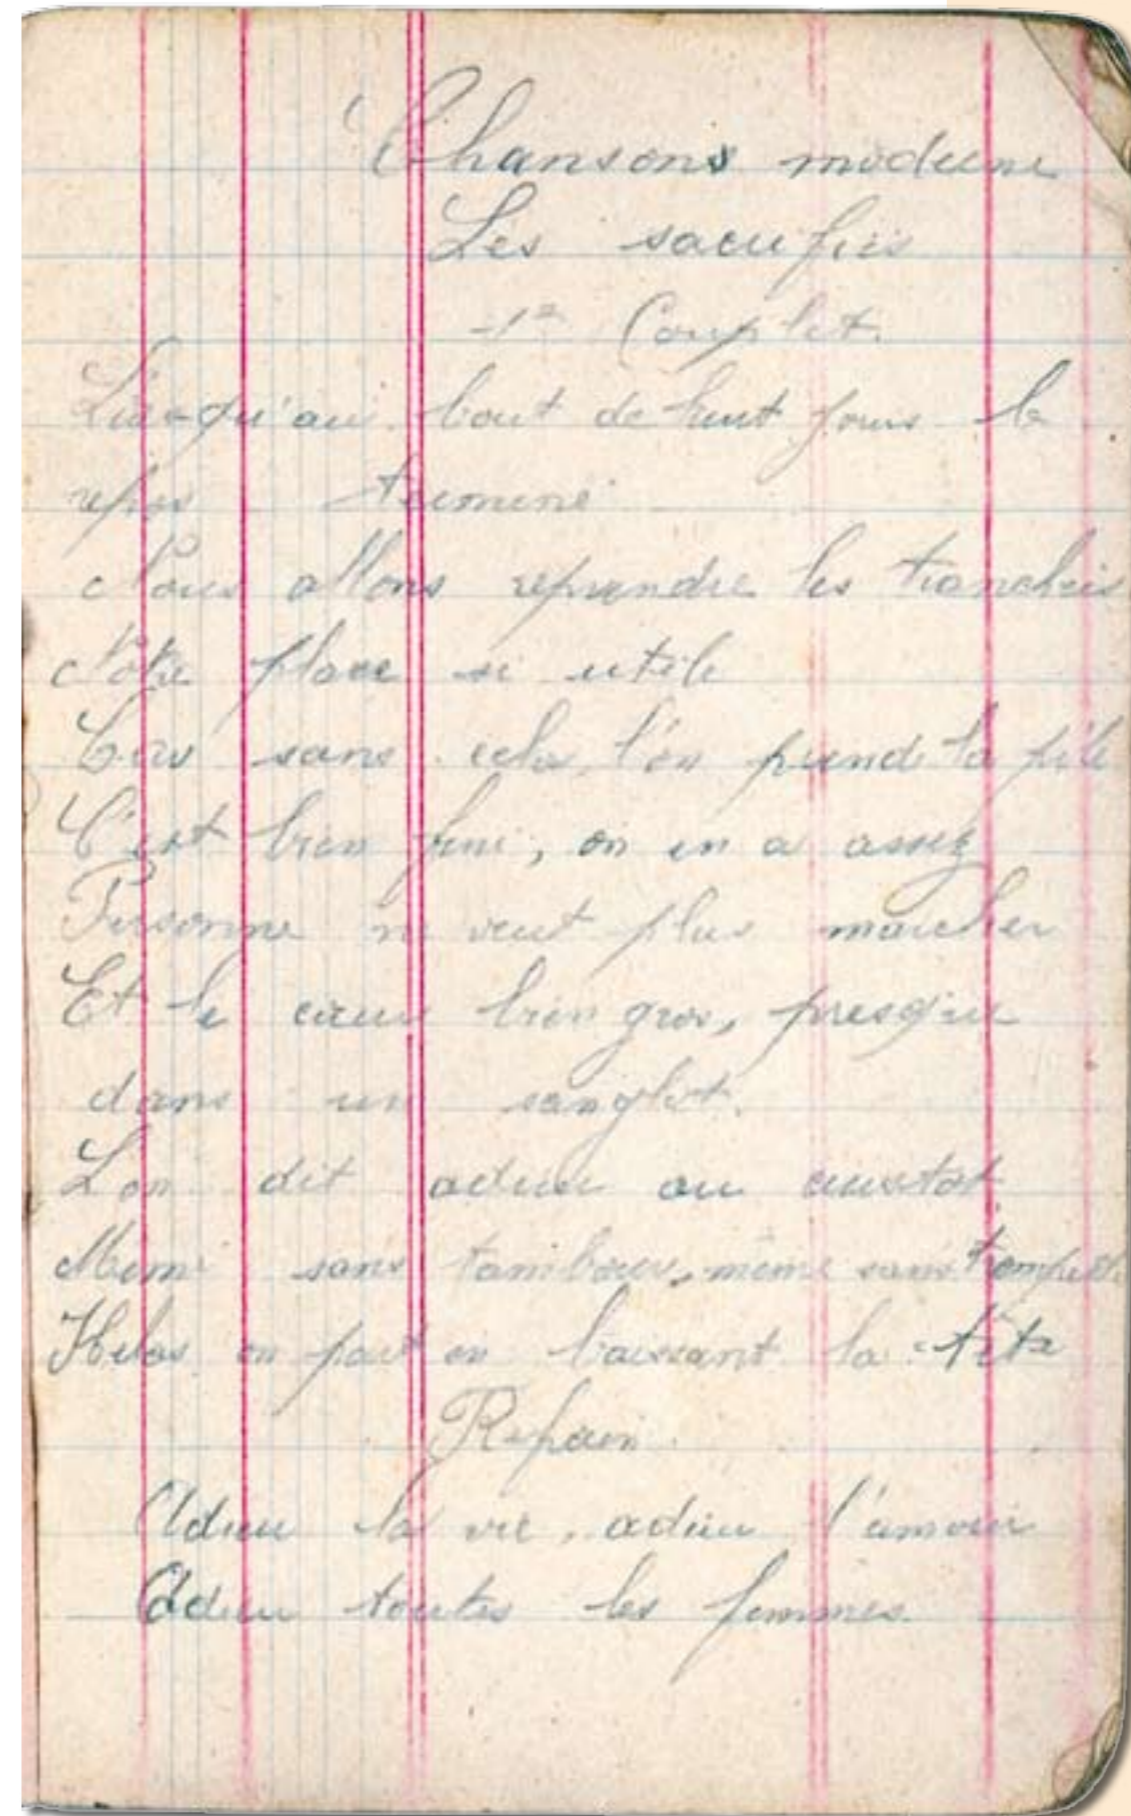 Chansons moderne
Les sacrifiés
1er Couplet.
Lorsqu'au bout de huit jours le
repos terminé
Nous allons reprendre les tranchées
Notre place si utile
Car sans cela l'on prend la pile
C'est bien fini, on en a assez
Personne ne veut plus marcher
Et le cœur bien gros, presque
dans un sanglot.
L'on dit adieu au
Meme sans tambour, même sans trompette
Helas on part en baissant la tête
Refrain
Adieu la vie, adieu l'amour
Adieu toutes les femmes.